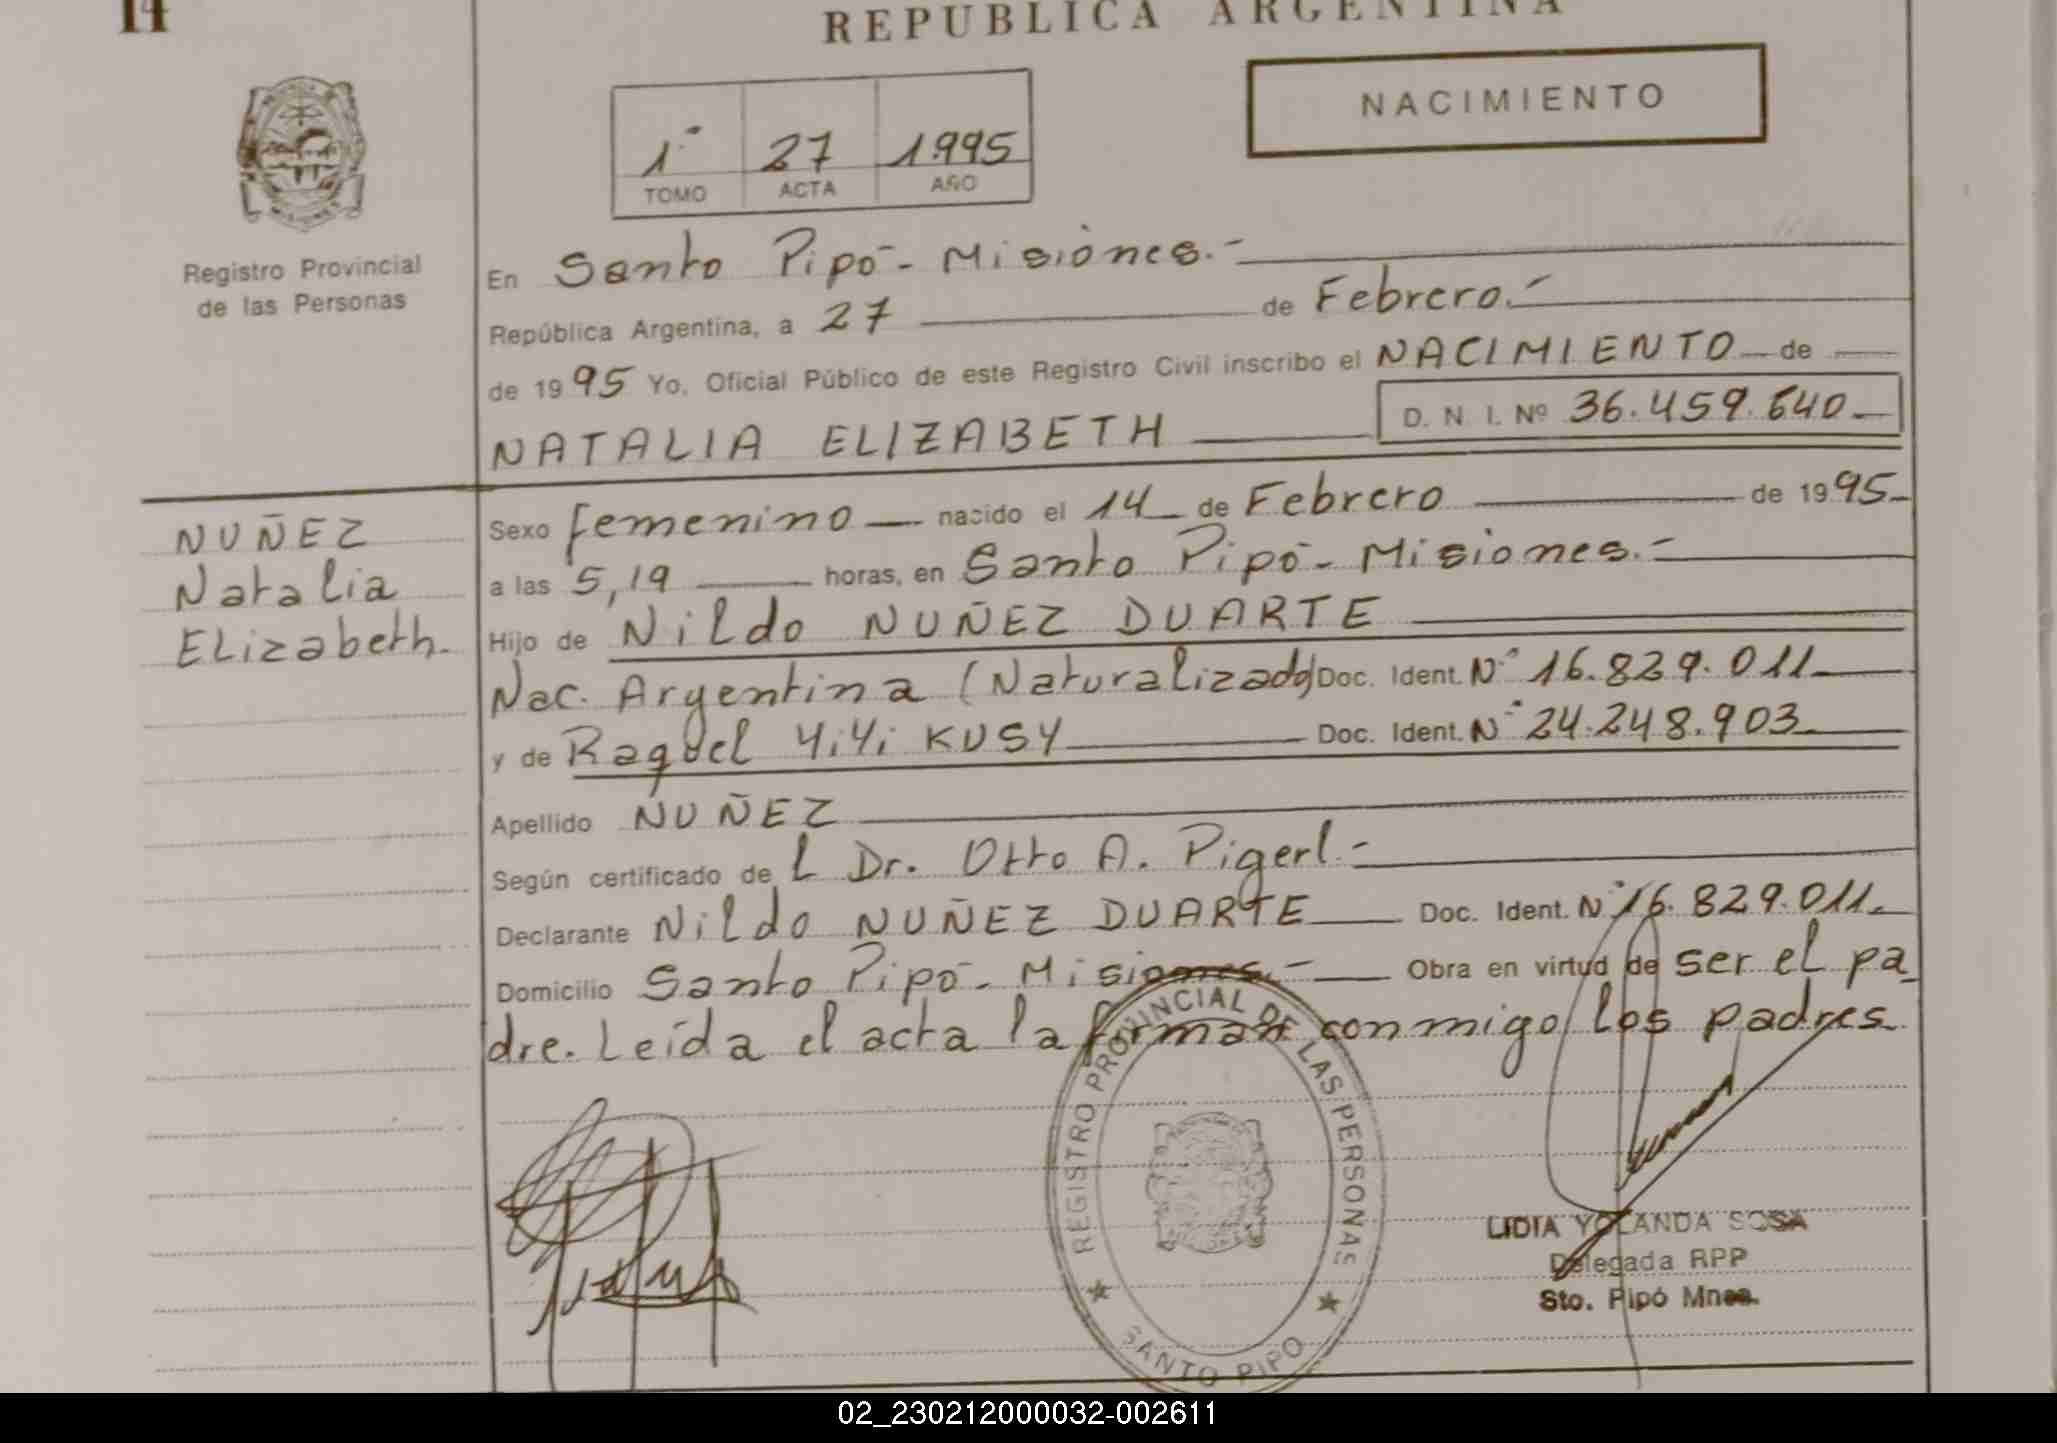 14
REPUBLICA ARGENTINA
NACIMIENTO
1º 27 1995
TOMO ACTA AÑO
Registro Provincial
de las Personas
En Santo Pipó - Misiones.-
República Argentina, a 27 de Febrero.-
de 1995 Yo, Oficial Público de este Registro Civil inscribo el NACIMIENTO de
NATALIA ELIZABETH D. N. I. Nº 36.459.640
NUÑEZ
Natalia
Elizabeth.
Sexo femenino nacido el 14 de Febrero de 1995
a las 5,19 horas, en Santo Pipó - Misiones.-
Hijo de Nildo NUÑEZ DUARTE
Nac. Argentina (Naturalizado) Doc. Ident. Nº 16.829.011
y de Raquel Yiyi KUSY Doc. Ident. Nº 24.248.903
Apellido NUÑEZ
Según certificado de L Dr. Otto A. Pigerl.-
Declarante Nildo NUÑEZ DUARTE Doc. Ident. Nº 16.829.011
Domicilio Santo Pipó - Misiones.- Obra en virtud de ser el pa
dre. Leída el acta la firman conmigo los padres
REGISTRO PROVINCIAL DE LAS PERSONAS
SANTO PIPO
LIDIA YOLANDA SOSA
Delegada RPP
Sto. Pipó Mnes.
02_230212000032-002611